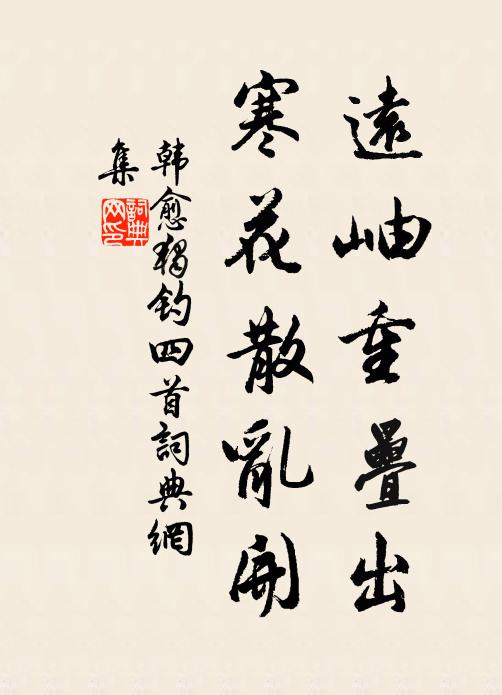 遠岫重疊出
寒花散亂開
韩愈獨釣四首詞典網
集
詞典
网印